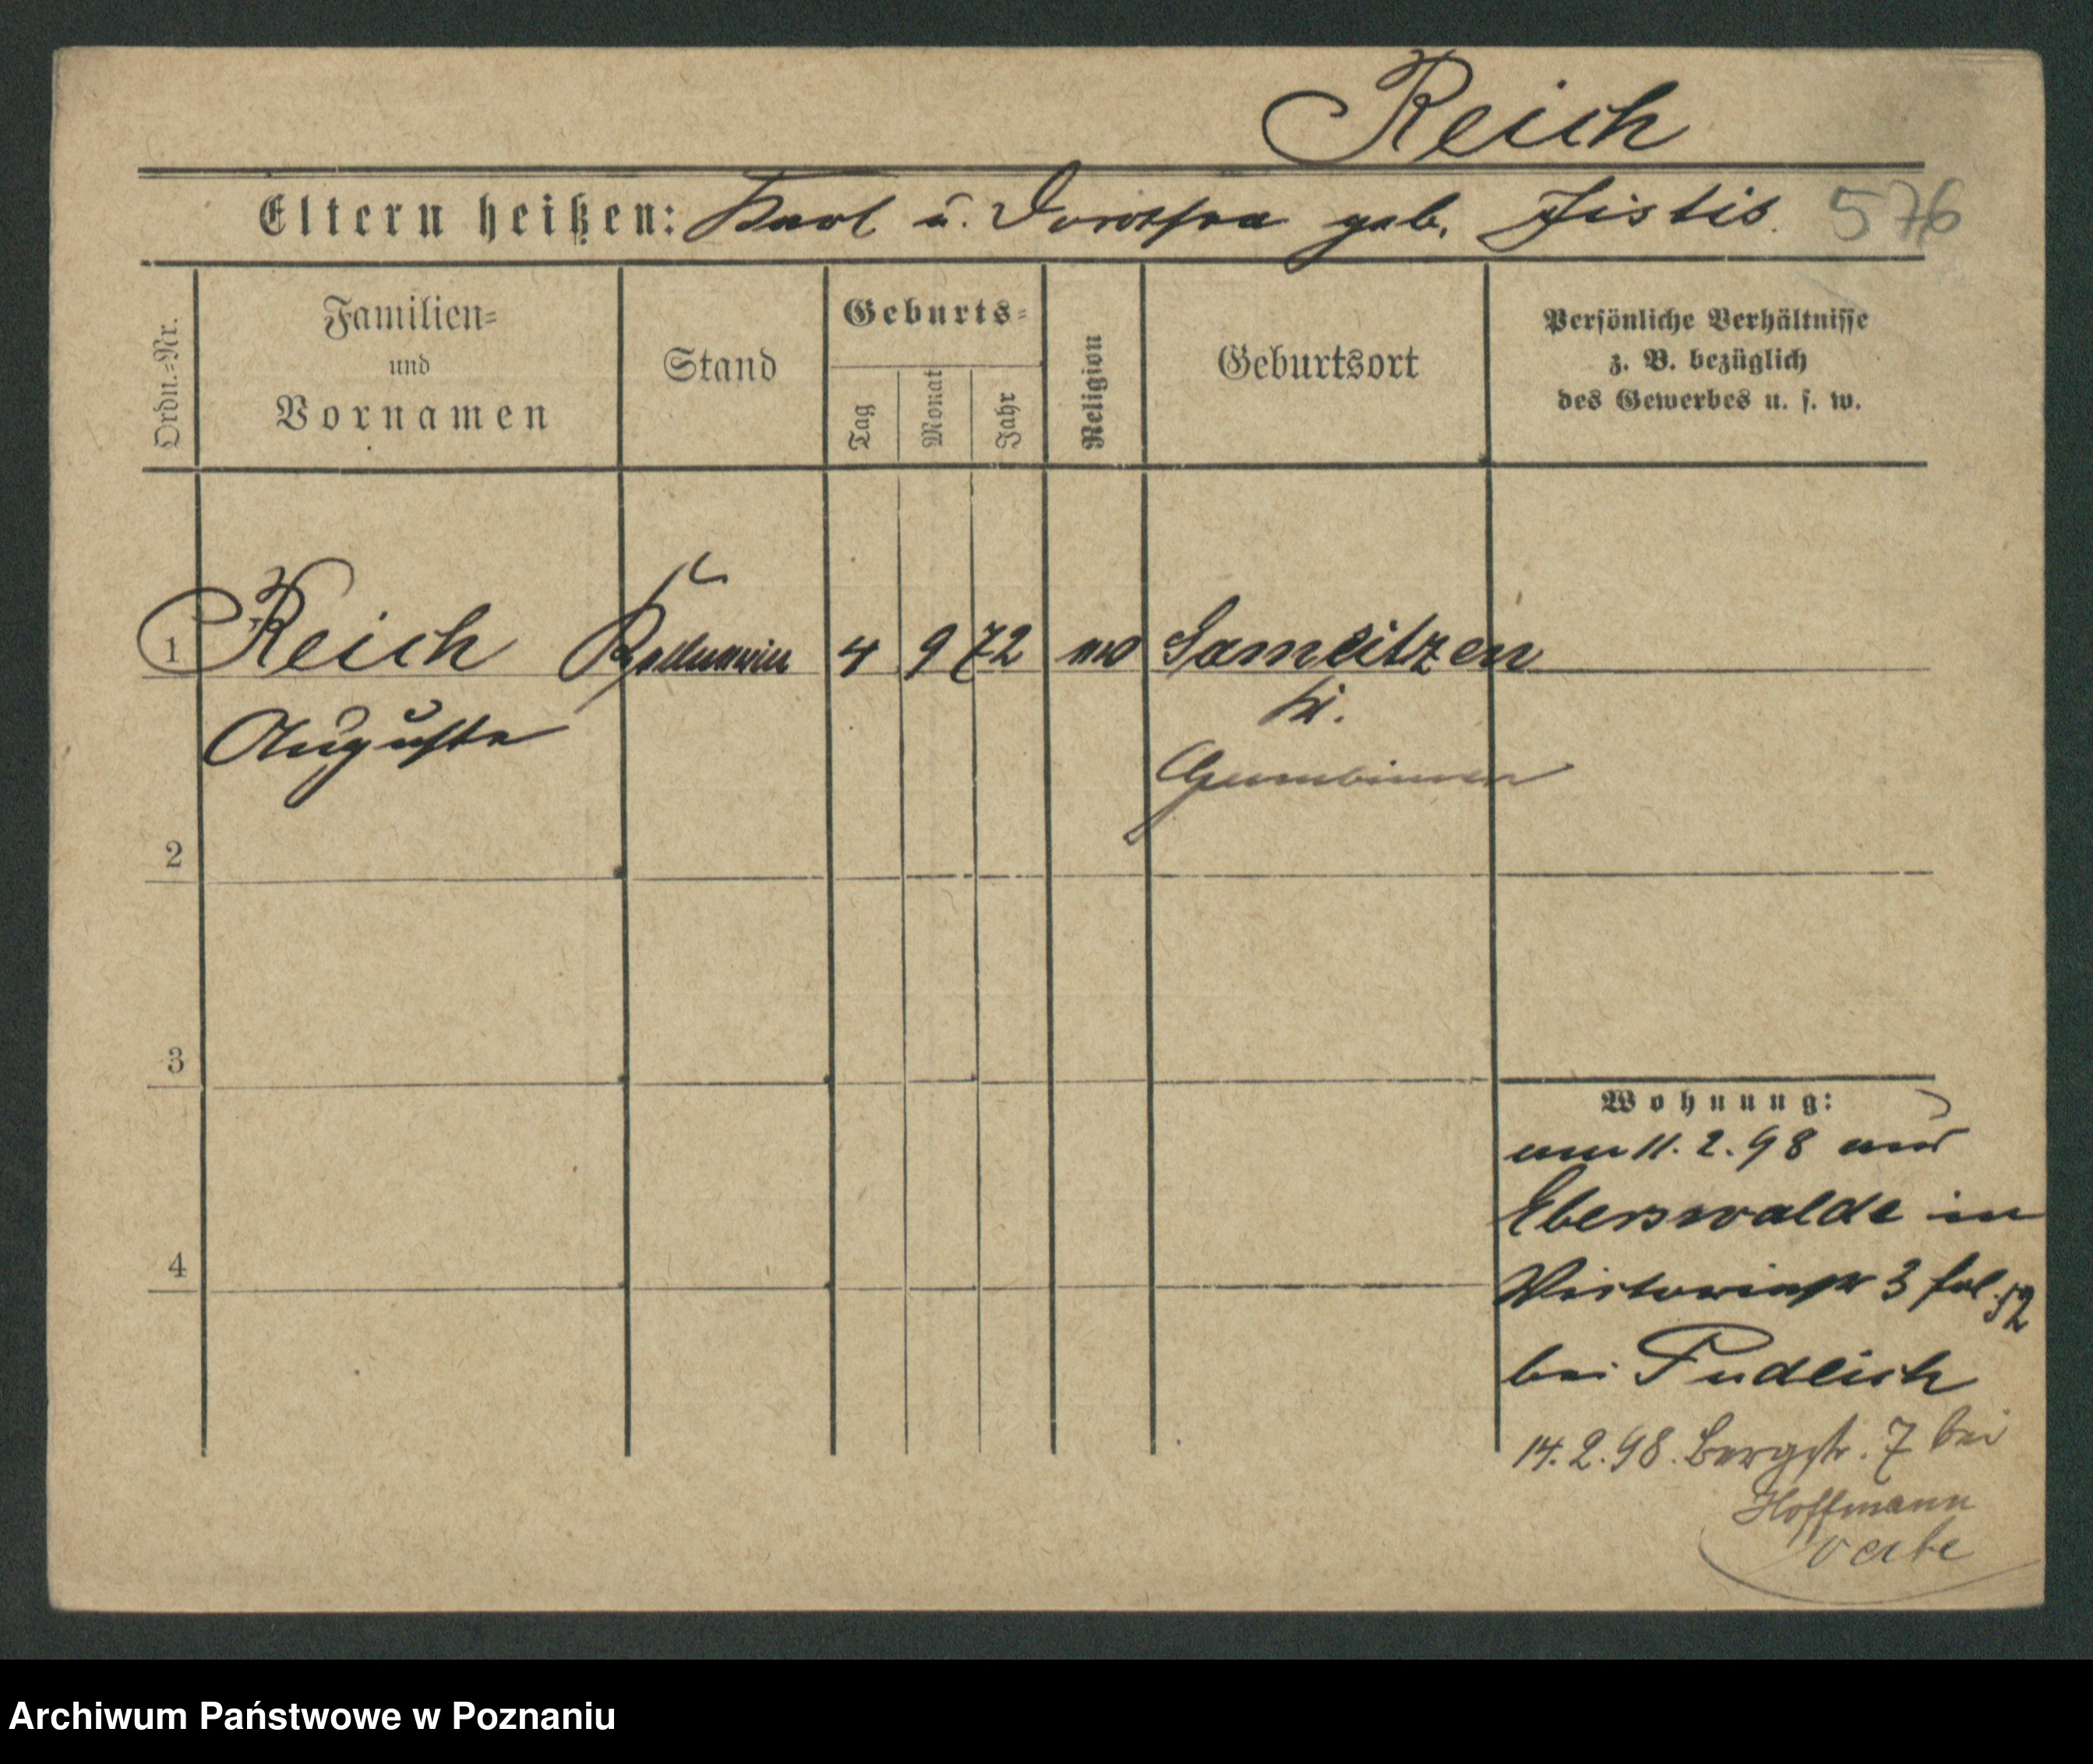 Reich
Eltern heißen: Karl u. Dorothea geb. Jistis. 576
Ordn.-Nr.
Familien-
und
Vornamen
Stand
Geburts-
Tag
Monat
Jahr
Religion
Geburtsort
Persönliche Verhältnisse
z. B. bezüglich
des Gewerbes u. s. w.
1 Reich Kellnerin 4 9 72 ev Sameitzen
Auguste Kr.
Gumbinnen
2
3
4
Wohnung:
am 11.2.98 aus
Eberswalde in
Victoriastr 3 fol. 52
bei Pudlich
14.2.98. Bergstr. 7 bei
Hoffmann
Archiwum Państwowe w Poznaniu